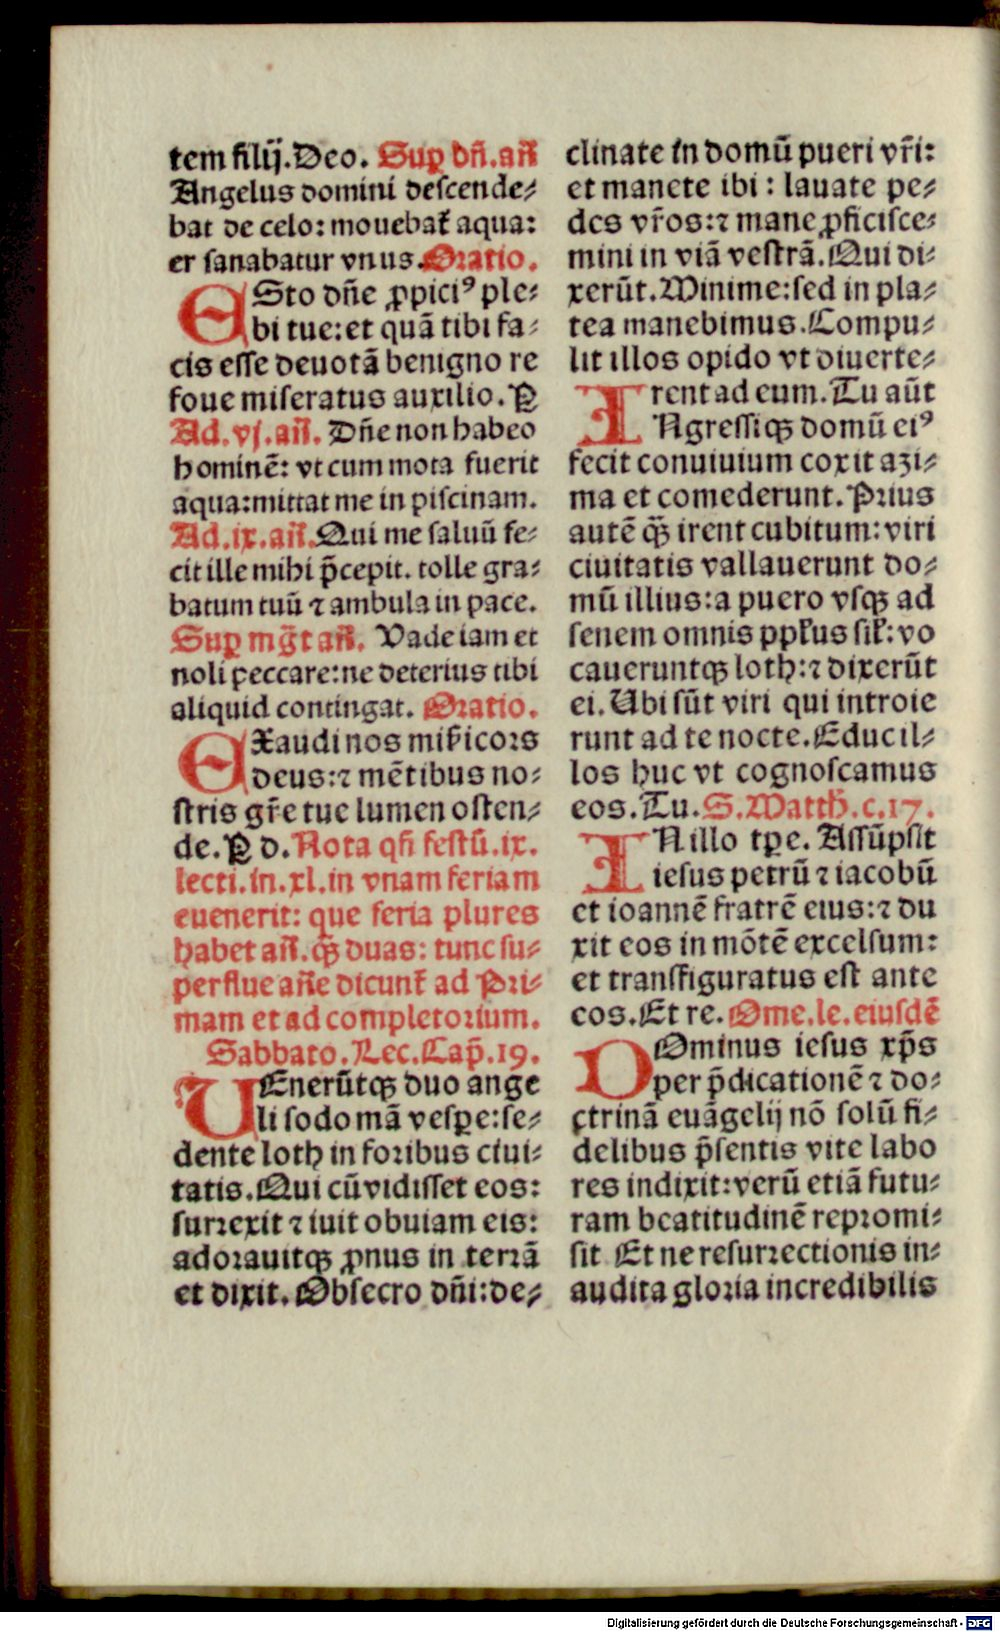 tem filij. Deo. Suꝑ bñ. añ
Angelus domini descende⸗
bat de celo: mouebat᷑ aqua:
et sanabatur vnus. Oratio.
ESto dñe ꝓpiciꝰ ple⸗
bi tue: et quã tibi fa⸗
cis esse deuotã benigno re
foue miseratus auxilio. P
Ad. vj. añ. Dñe non habeo
hominẽ: vt cum mota fuerit
aqua: mittat me in piscinam.
Ad. ix. añ. Qui me saluũ fe⸗
cit ille mihi p̃cepit. tolle gra⸗
batum tuũ ⁊ ambula in pace.
Suꝑ mg̃t añ. Vade iam et
noli peccare: ne deterius tibi
aliquid contingat. Oratio.
EXaudi nos mit̃icors
deus: ⁊ mẽtibus no⸗
stris gr̃e tue lumen osten⸗
de. P d. Nota qñ festũ. ix.
lecti. in. xl. in vnam feriam
euenerit: que feria plures
habet añ. q̃ꝫ duas: tunc su⸗
perflue añe dicunt᷑ ad Pri⸗
mam et ad completorium.
Sabbato. Lec. Cap̃. 19.
VEnerũtqꝫ duo ange
li sodomã vesꝑe: se⸗
dente loth in foribus ciui⸗
tatis. Qui cũ vidisset eos:
surrexit ⁊ iuit obuiam eis:
adorauitqꝫ ꝓnus in terrã
et dixit. Obsecro dñi: de⸗
clinate in domũ pueri vr̃i:
et manete ibi: lauate pe⸗
des vr̃os: ⁊ mane ꝓficisce⸗
mini in viã vestrã. Qui di⸗
xerũt. Minime: sed in pla⸗
tea manebimus. Compu⸗
lit illos opido vt diuerte⸗
rent ad eum. Tu aũt
INgressiqꝫ domũ eiꝰ
fecit conuiuium coxit azi⸗
ma et comederunt. Prius
autẽ q̃ꝫ irent cubitum: viri
ciuitatis vallauerunt do⸗
mũ illius: a puero vsqꝫ ad
senem omnis ppl̃us sil̃: vo
caueruntqꝫ loth: ⁊ dixerũt
ei. Ubi sũt viri qui introie
runt ad te nocte. Educ il⸗
los huc vt cognoscamus
eos. Tu. S. Matth̃. c. 17.
IN illo tꝑe. Assũpsit
iesus petrũ ⁊ iacobũ
et ioannẽ fratrẽ eius: ⁊ du
xit eos in mõtẽ excelsum:
et transfiguratus est ante
eos. Et re. Ome. le. eiusdẽ
DOminus iesus xp̃s
per p̃dicationẽ ⁊ do⸗
ctrinã euãgelij nõ solũ fi⸗
delibus p̃sentis vite labo
res indixit: verũ etiã futu⸗
ram beatitudinẽ repromi⸗
sit Et ne resurrectionis in⸗
audita gloria incredibilis
Digitalisierung gefördert durch die Deutsche Forschungsgemeinschaft - DFG